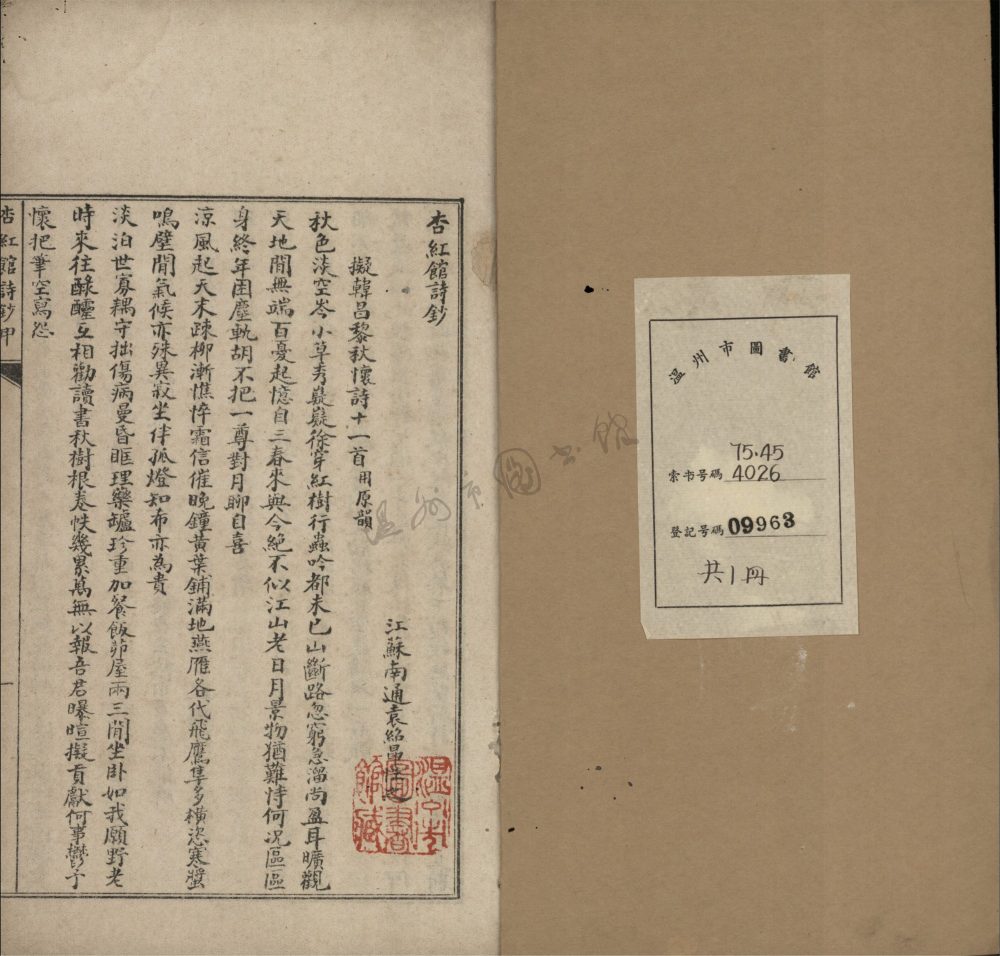 杏紅館詩鈔
江蘇南通袁紹昌
擬韓昌黎秋懷詩十一首用原韻
秋色淡空岑小草秀嶷嶷徐穿紅樹行蟲吟都未已山斷路忽窮急溜尚盈耳曠觀
天地間無端百憂起憶自三春來與今絕不似江山老日月景物猶難恃何況區區
身終年困塵軌胡不把一尊對月聊自喜
涼風起天末疎柳漸憔悴霜信催晚鐘黃葉鋪滿地燕雁各代飛鷹隼多橫恣寒螿
鳴壁間氣候亦殊異寂坐伴孤燈知布亦為貴
淡泊世寡耦守拙傷病曼昏眶理藥罏珍重加餐飯茆屋兩三間坐卧如我願野老
時來往醁醽互相勸讀書秋樹根卷帙幾累萬無以報吾君曝暄擬貢獻何事鬱予
懷把筆空寫怨
杏紅館詩鈔甲
一
溫州市圖書館藏
溫州市圖書館
索书号碼 75.45
4026
登記号碼 09963
共1冊
温州市图书馆